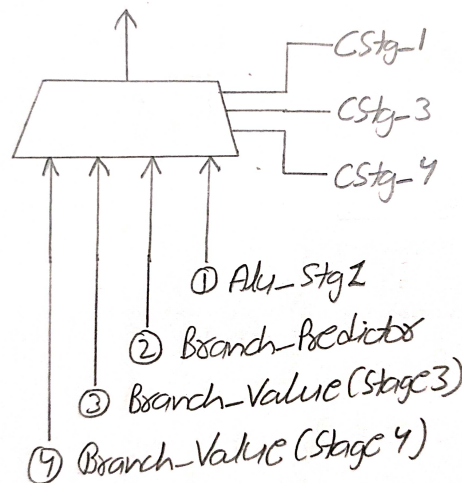 CStg_1
CStg_3
CStg_4
① Alu_Stg1
② Branch_Predictor
③ Branch_Value (Stage 3)
④ Branch_Value (Stage 4)